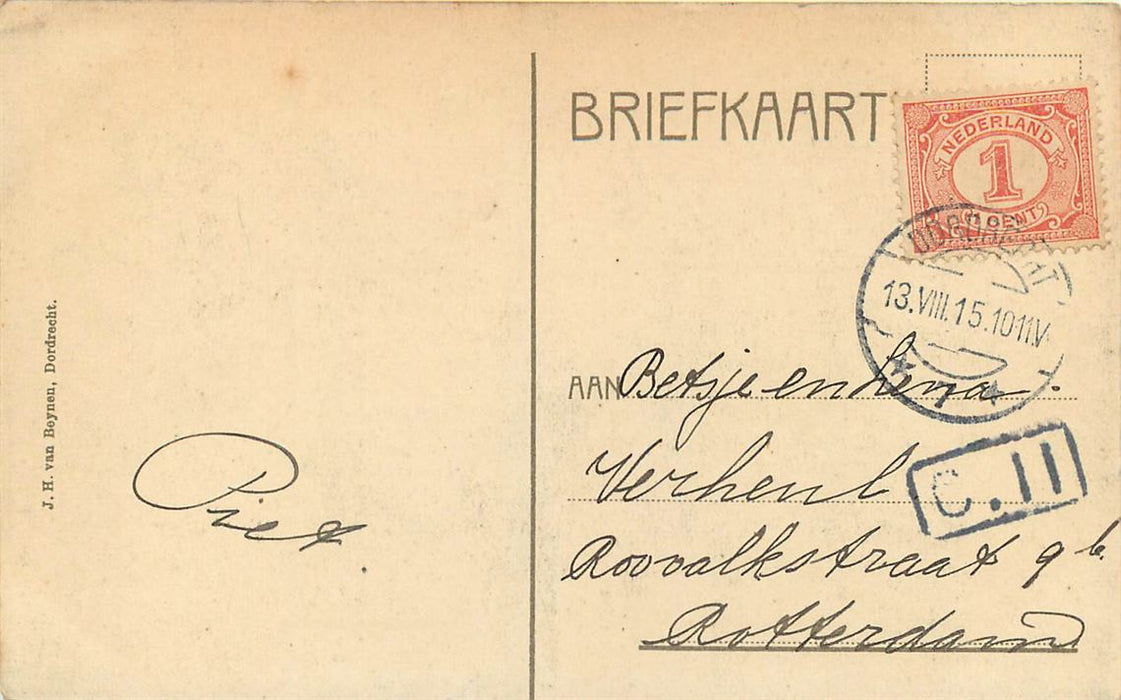 J. H. van Beynen, Dordrecht.
Piet
BRIEFKAART
NEDERLAND
1
CENT
DORDRECHT
13.VIII.15.10-11.V
1
AAN Betsje en Lena.
Verheul
C.11
Roovalkstraat 9b.
Rotterdam